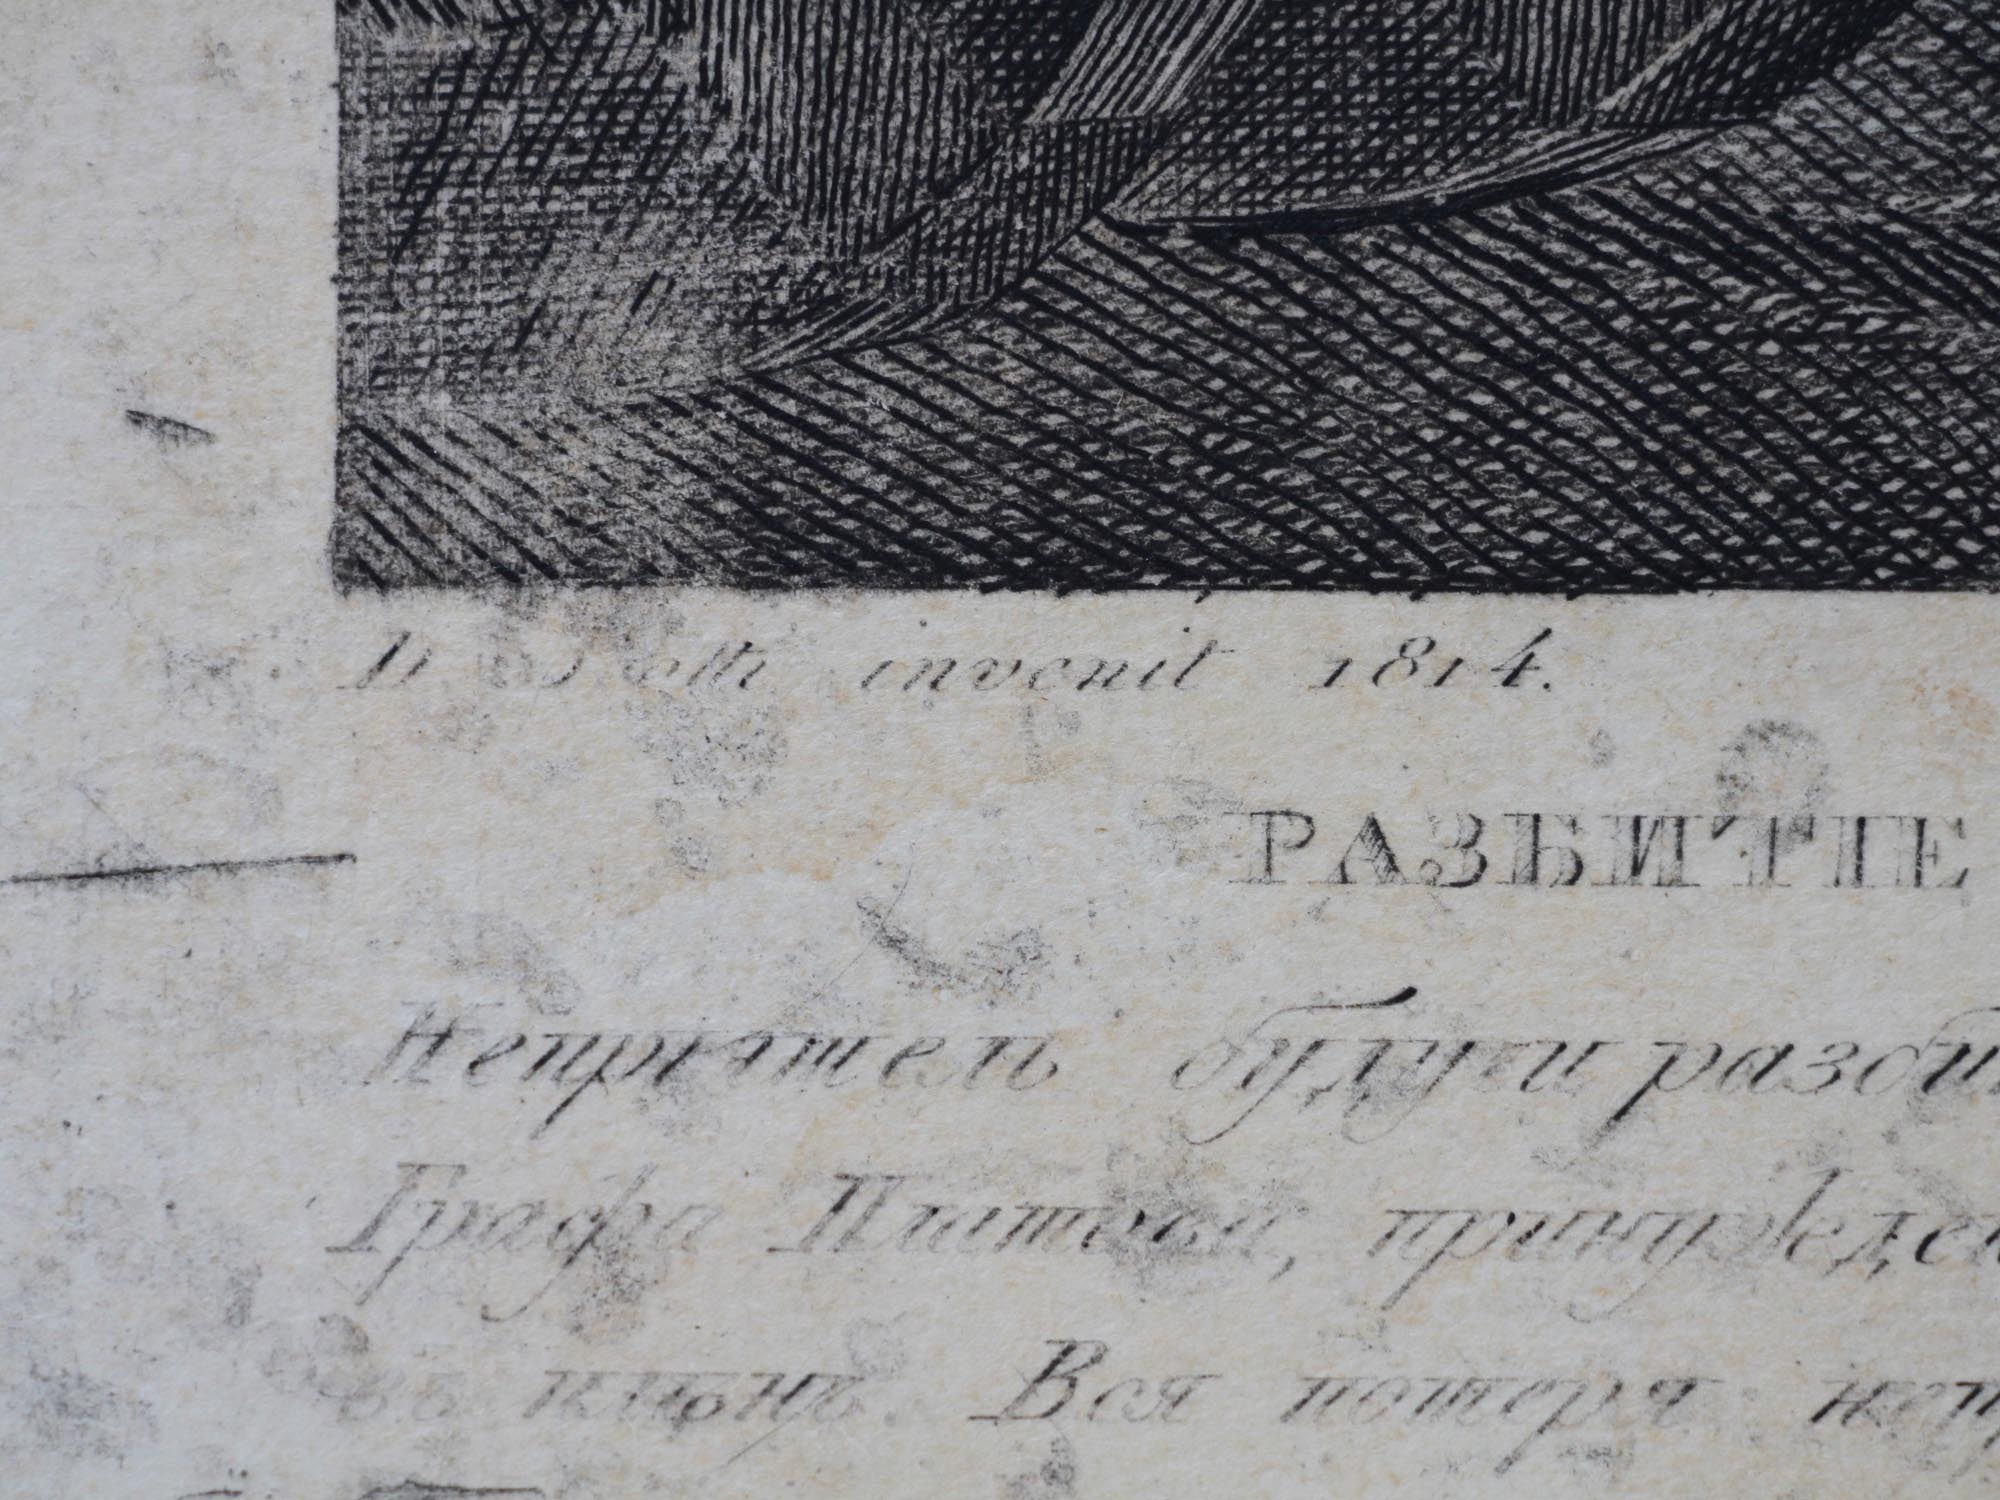 invenit 1814.
РАЗБИТІЕ
Непрıятель будучи разби
Графа Платова, принужден
въ плѣнъ. Вся потеря неп